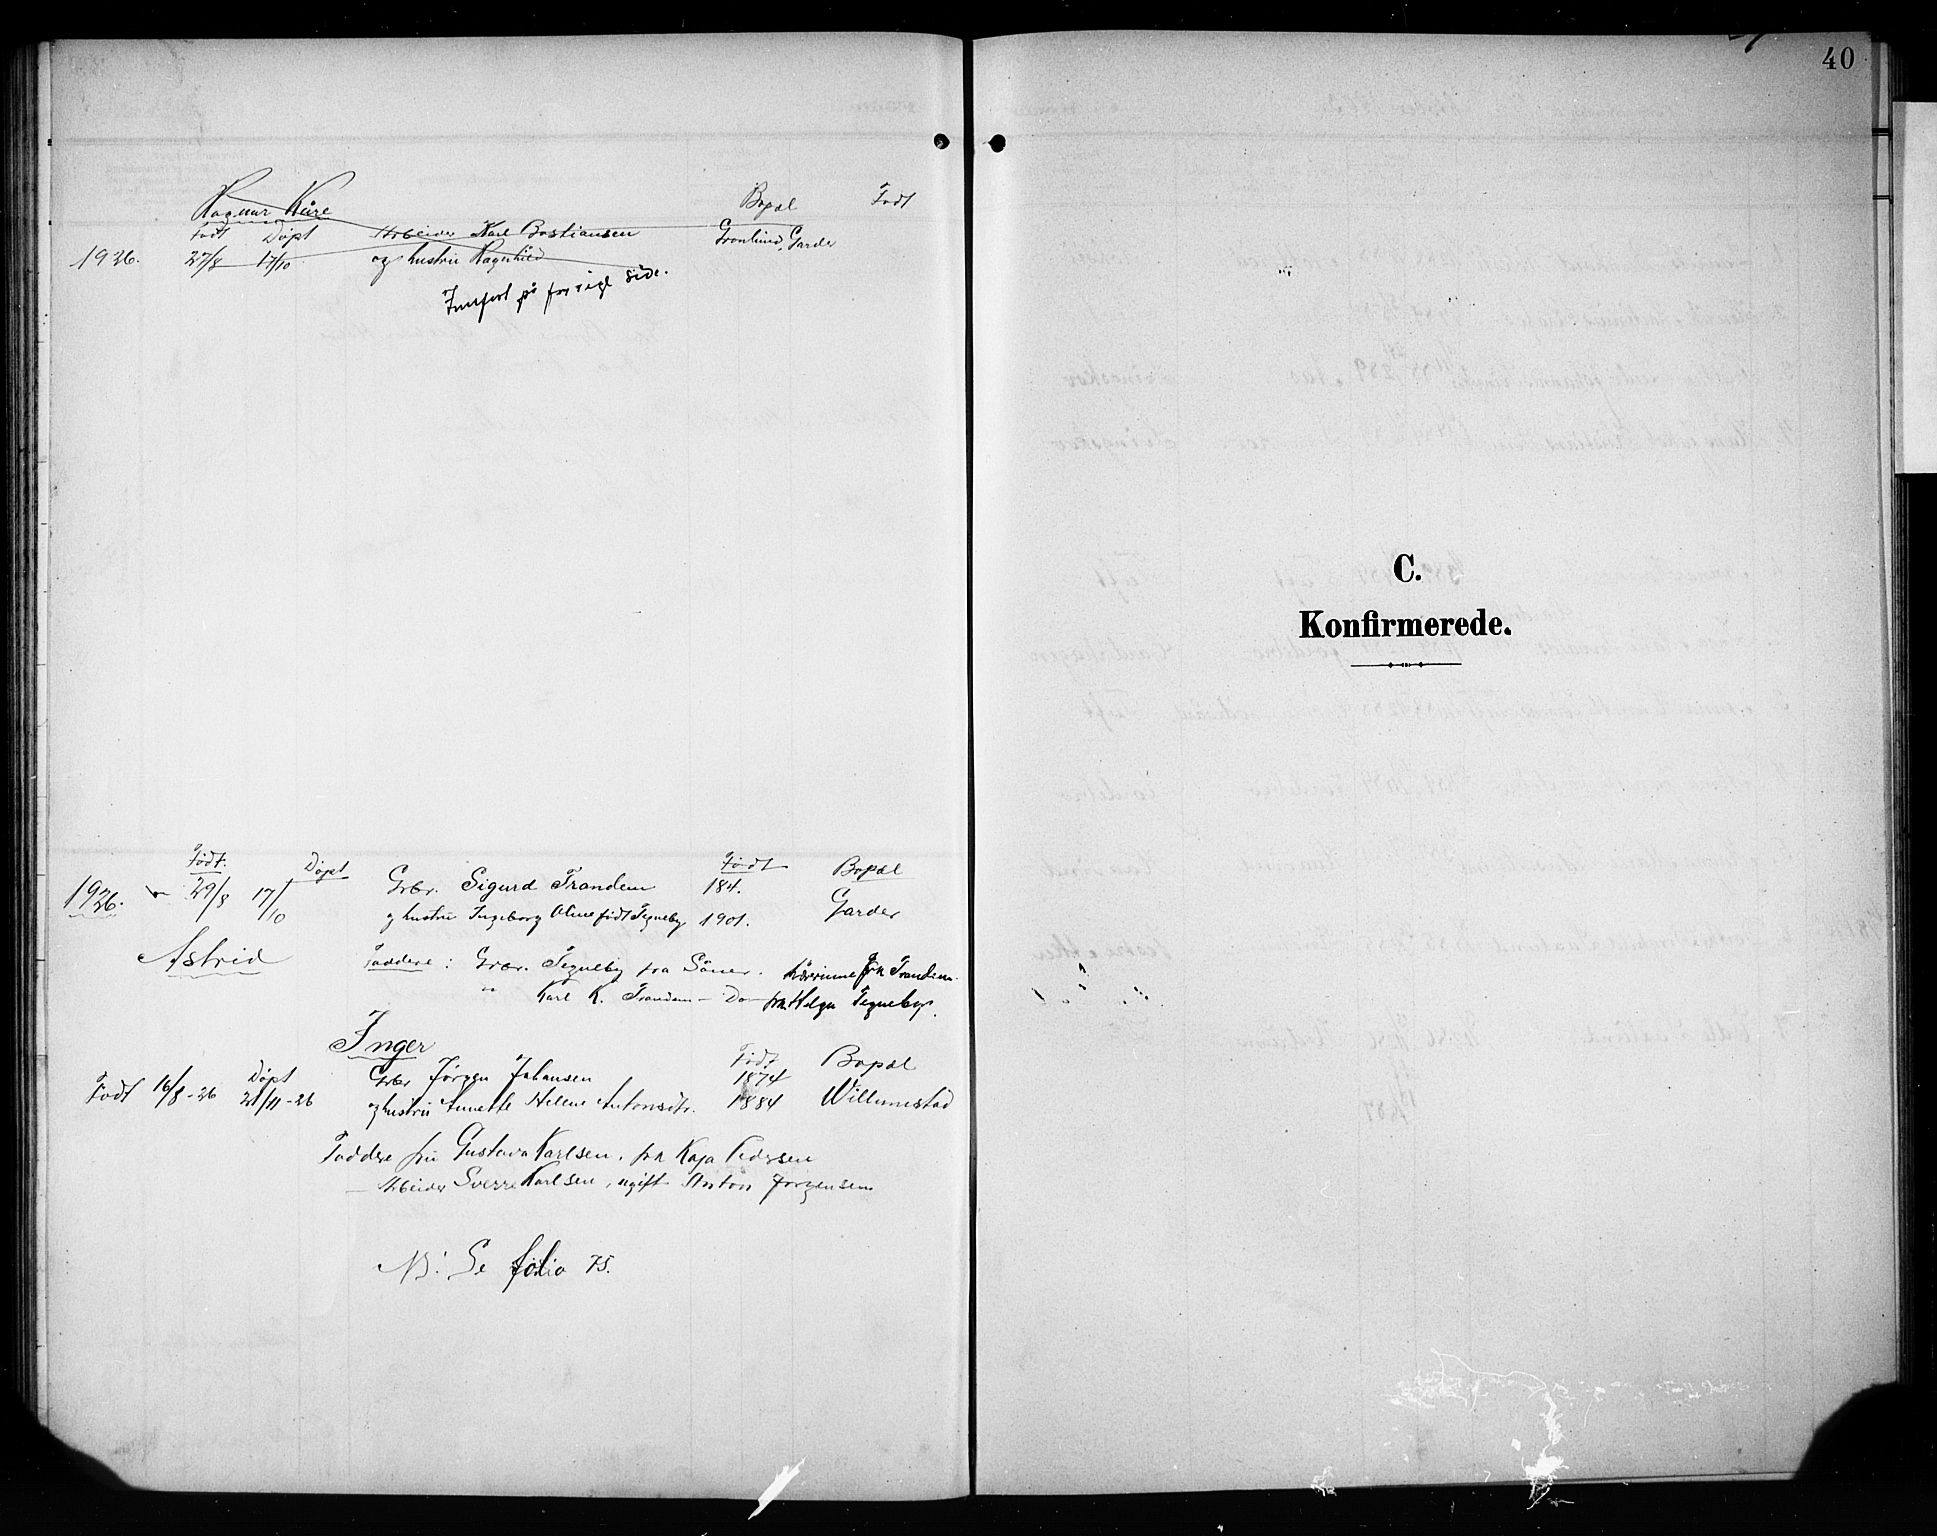 40
Ragnar Kåre
Bopæl Født
Født Døpt Arbeider Karl Bastiansen Grønlund, Garder
1926. 27/8 17/10 og hustru Ragnhild
Innført på forrige side.
Født. Døpt Født Bopæl
1926. 29/8 17/10 Grbr. Sigurd Trandem 184. Garder
og hustru Ingeborg Oline født Tegneby 1901.
Astrid Faddere: Grbr. Tegneby fra Såner. Lærerinne frk Trandem.
" Karl K. Trandem — Do frk. Helga Tegneby.
Inger
Grbr Jørgen Johansen Født 1874 Bopæl
Født 16/8-26 Døpt 21/11-26 og hustru Annette Helene Antonsdtr. 1884 Willumstad
Faddere fru Gustava Karlsen, frk Kaja Pedersen
— Arbeider Sverre Karlsen, ugift Anton Jørgensen
NB! Se folio 75.
C.
Konfirmerede.